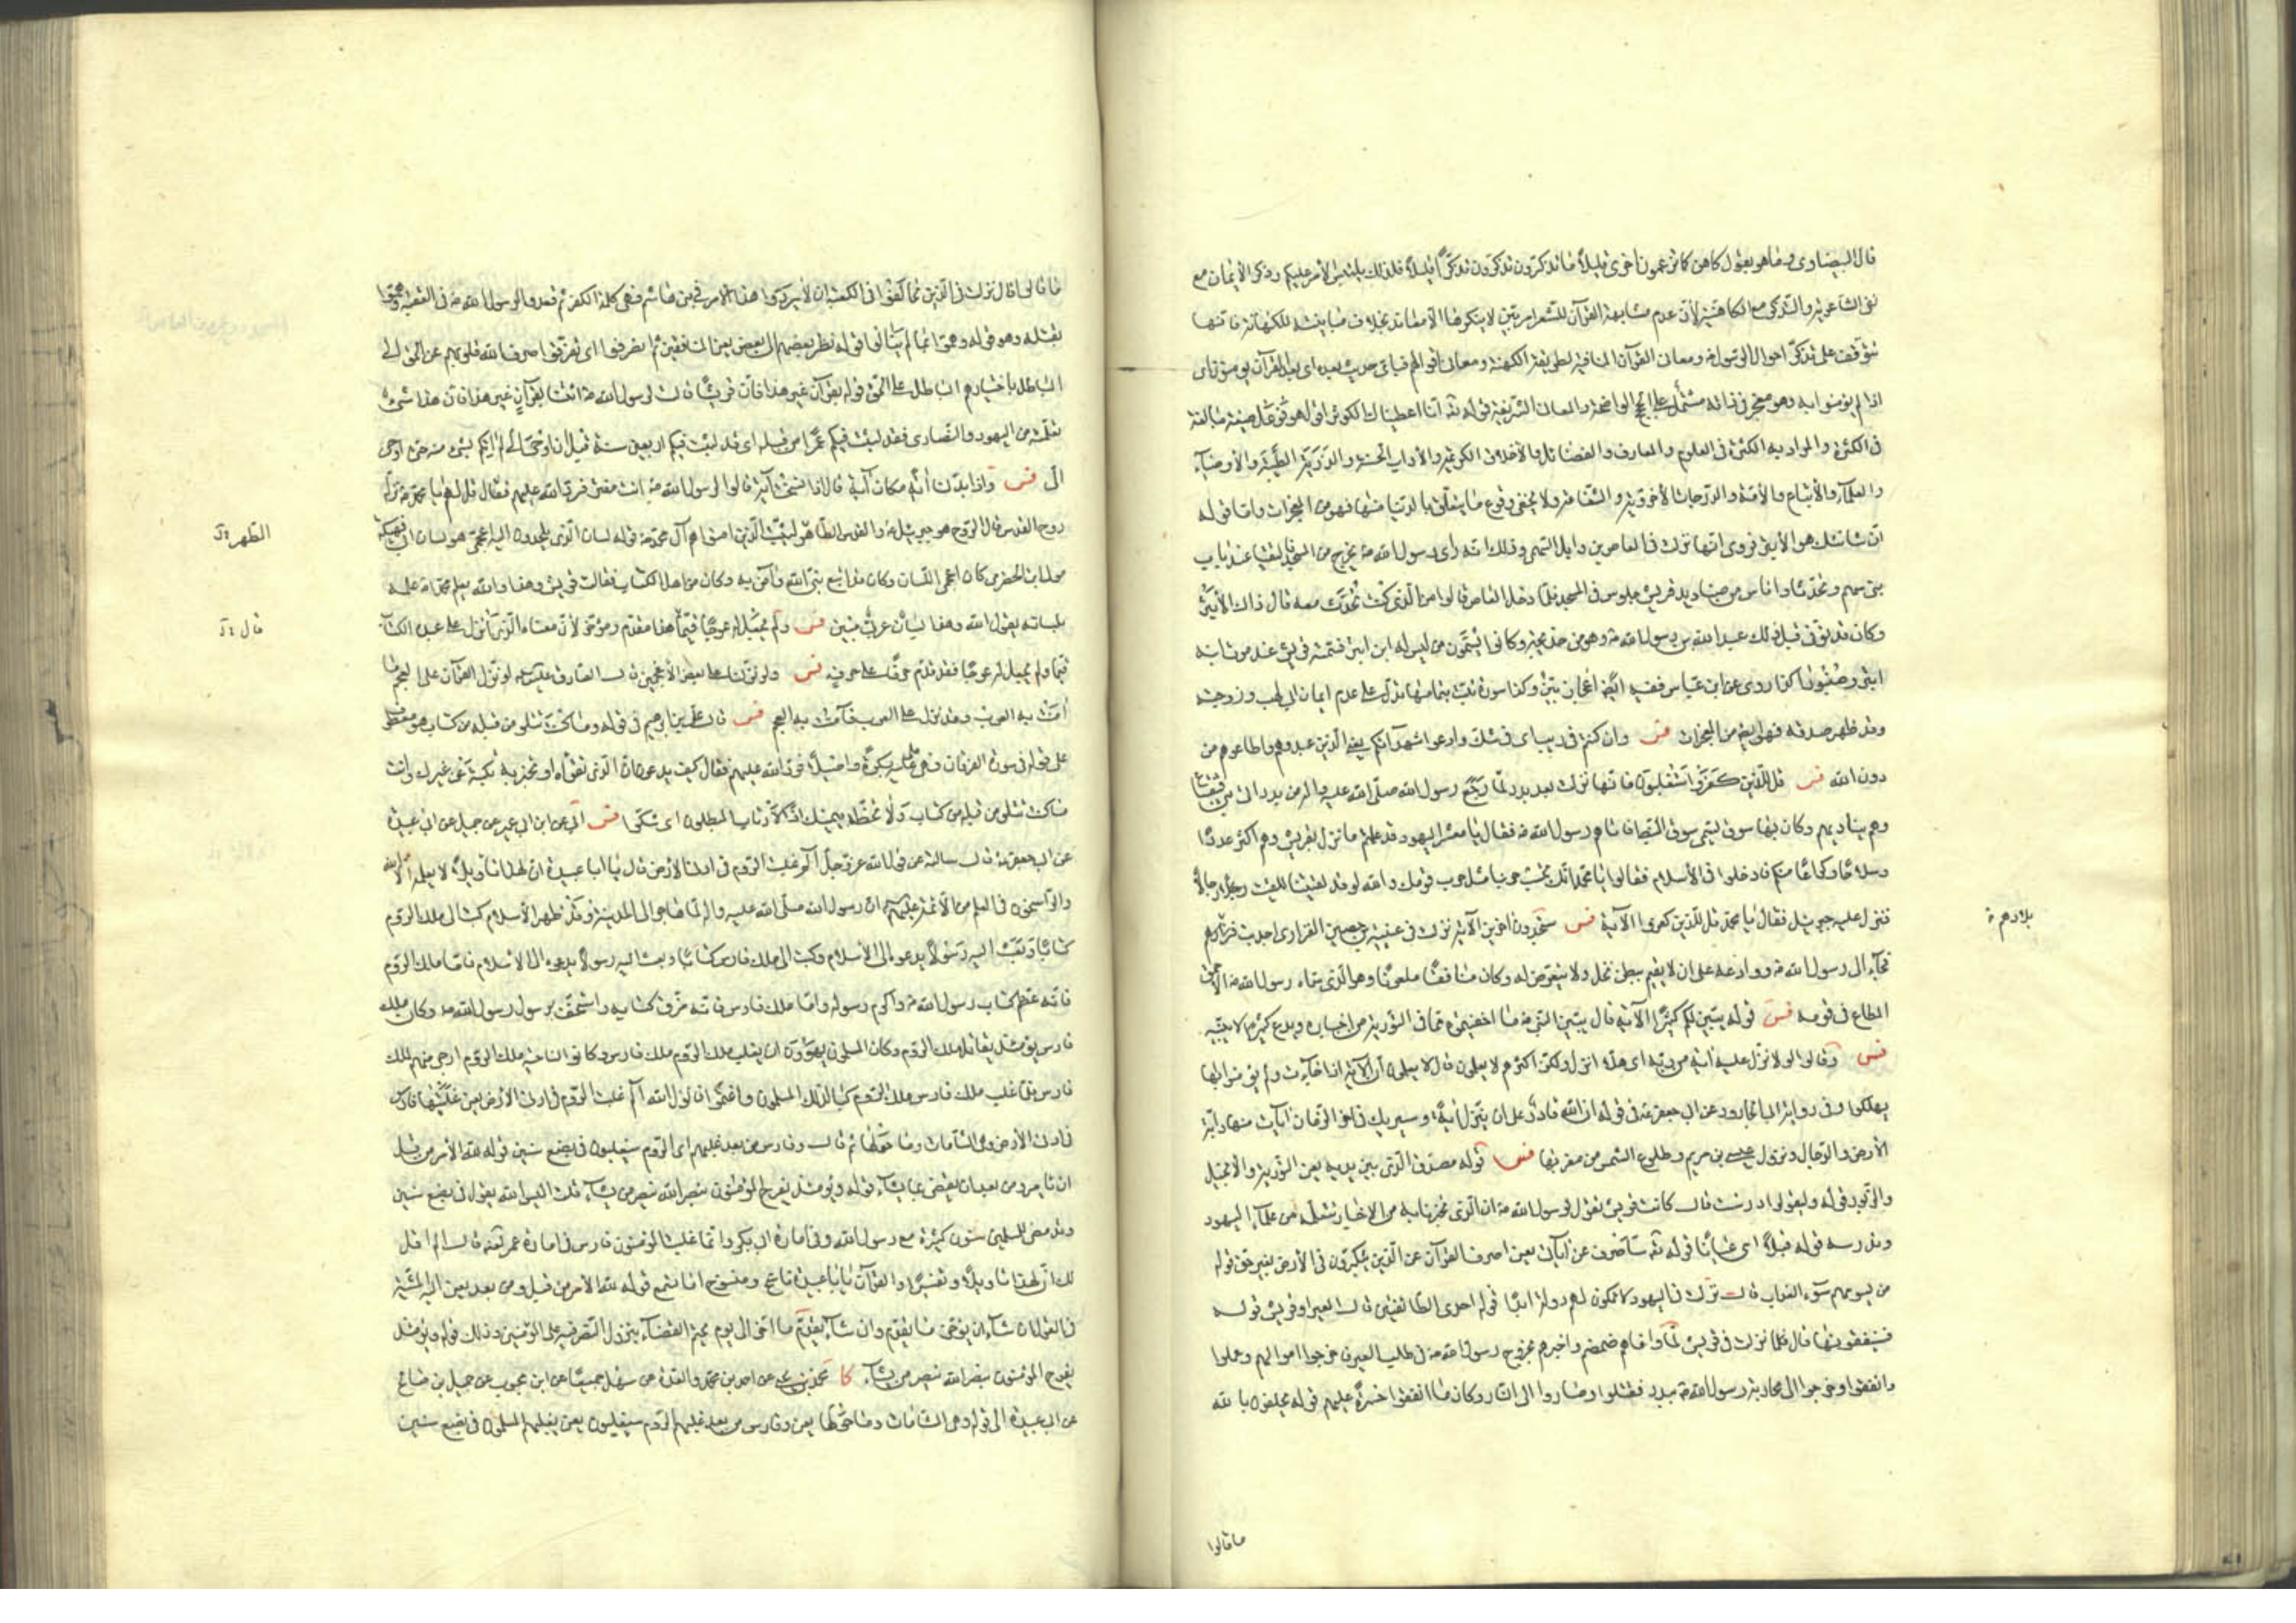 قال البيضاوى وما هو بقول كاهن كما تزعمون اخرى قليلاً ما تذكرون تذكرون تذكراً قليلاً فلذلك يلتبس الأمر عليكم وذكر الأيمان مع
نفى الشاعرية والتذكر مع الكاهنية لأن عدم مشابهة القرآن للشعر امر بين لا ينكرها الا معاند بخلاف مباينته للكهانة فانها
تتوقف على تذكر احوال الرسول ص ومعانى القرآن المنافية لطريقة الكهنة ومعانى اقوالهم فباى حديث بعده اى بعد القرآن يؤمنون اى
اذا لم يؤمنوا به وهو معجز فى ذاته مشتمل على الحجج الواضحة والمعانى الشريفة قوله تع انا اعطيناك الكوثر اقول هو فوعل صيغة مبالغة
فى الكثرة والمراد به الكثرة فى العلوم والمعارف والفضائل والأخلاق الكريمة والأداب الحسنة والذرية الطيبة والأوصياء
والعلماء والأتباع والأمة والدرجات الأخروية والشفاعة ولا يخفى وقوع ما يتعلق بالدنيا منها فهو من المعجزات واما قوله
ان شانئك هو الأبتر فروى انها نزلت فى العاص بن وايل السهمى وذلك انه رأى رسول الله ص يخرج من المسجد فالتقيا عند باب
بنى سهم وتحدثا واناس من صناديد قريش جلوس فى المسجد فلما دخل العاص قالوا من الذى كنت تتحدث معه قال ذاك الأبتر
وكان قد توفى قبل ذلك عبد الله بن رسول الله ص وهو من خديجة وكانوا يسمون من ليس له ابن ابتر فسمته قريش عند موت ابنه
ابتر وصنبورا كذا روى عن ابن عباس ففيه ايضا اعجاز بين وكذا سورة تبت بتمامها تدل على عدم ايمان ابى لهب وزوجته
وقد ظهر صدقه فهى ايضا من المعجزات فس وان كنتم فى ريب اى فى شك وادعوا شهداءكم يعنى الذين عبدوهم واطاعوهم من
دون الله فس قل للذين كفروا ستغلبون فانها نزلت بعد بدر لما رجع رسول الله صلى الله عليه واله من بدر اتى بنى قينقاع
وهم يناديهم وكان بها سوق يسمى سوق النبط فاتاهم رسول الله ص فقال يا معشر اليهود قد علمتم ما نزل بقريش وهم اكثر عددا
وسلاحا وكراعا منكم فادخلوا فى الأسلام فقالوا يا محمد انك تحسب حربنا مثل حرب قومك والله لو قد لقيتنا للقيت رجالا
فنزل عليه جبرئيل فقال يا محمد قل للذين كفروا الآية فس ستجدون اخرين الآية نزلت فى عيينة بن حصين الفزارى اجدبت بلادهم
فجاء الى رسول الله ص ووادعه على ان لا يقيم ببطن نخل ولا يتعرض له وكان منافقا ملعونا وهو الذى سماه رسول الله ص الأحمق
المطاع فى قومه فس قوله يبين لكم كثيرا الآية قال يبين النبى ص ما اخفيتموه مما فى التورية من اخباره ويدع كثيرا لا يبينه
فس وقالوا لولا نزل عليه آية من ربه اى هلا انزل ولكن اكثرهم لا يعلمون قال لا يعلمون ان الآية اذا جاءت ولم يؤمنوا بها
يهلكوا وفى رواية ابى الجارود عن ابى جعفر ع فى قوله ان الله قادر على ان ينزل آية وسيريك فى اخر الزمان آيات منها دابة
الأرض والدجال ونزول عيسى بن مريم وطلوع الشمس من مغربها فس قوله مصدق الذى بين يديه يعنى التورية والأنجيل
والزبور قوله وليقولوا درست قال كانت قريش تقول لرسول الله ص ان الذى تخبرنا به من الاخبار تتعلمه من علماء اليهود
وتدرسه قوله قبلا اى عيانا قوله تع سأصرف عن آياتى يعنى اصرف القرآن عن الذين يتكبرون فى الأرض بغير حق قوله
من يسومهم سوء العذاب قال نزلت فى اليهود لا تكون لهم دولة ابدا قوله احدى الطائفتين قال العير او قريش قوله
فسينفقونها قال فلما نزلت فى قريش لما وافاهم ضمضم واخبرهم بخروج رسول الله ص فى طلب العير فاخرجوا اموالهم وحملوا
وانفقوا وخرجوا الى محاربة رسول الله ص ببدر فقتلوا وصاروا الى النار وكان ما انفقوا حسرة عليهم قوله يحلفون بالله
بلادهم ة
ما قالوا
ما قالوا قال نزلت فى الذين تحالفوا فى الكعبة ان لا يردوا هذا الأمر فى بنى هاشم فهى كلمة الكفر ثم قعدوا لرسول الله ص فى العقبة وهموا
بقتله وهو قوله وهموا بما لم ينالوا قوله نظر بعضهم الى بعض يعنى المنافقين ثم انصرفوا اى تفرقوا صرف الله قلوبهم عن الحق الى
الباطل باختيارهم الباطل على الحق قوله بقرآن غير هذا فان قريشا قالت لرسول الله ص ائتنا بقرآن غير هذا فان هذا شىء
تعلمته من اليهود والنصارى فقد لبثت فيكم عمرا من قبله اى قد لبثت فيكم اربعين سنة قبل ان اوحى الى لم آتكم بشىء منه حتى اوحى
الى فس واذا بدلنا آية مكان آية قال اذا نسخت آية قالوا لرسول الله ص انت مفتر فرد الله عليهم فقال قل لهم يا محمد نزله
روح القدس قال الروح هو جبرئيل ع والقدس الطاهر ليثبت الذين امنوا هم آل محمد ص قوله لسان الذى يلحدون اليه اعجمى هو لسان ابى فكيهة
مولى ابن الحضرمى كان اعجمى اللسان وكان قد اتبع نبى الله وآمن به وكان من اهل الكتاب فقالت قريش وهذا والله يعلم محمدا ص علمه
بلسانه يقول الله وهذا لسان عربى مبين فس ولم يجعل له عوجا قيما هذا مقدم ومؤخر لأن معناه الذى انزل على عبده الكتاب
قيما ولم يجعل له عوجا فقد قدم حرفا على حرف فس ولو نزلناه على بعض الأعجمين قال الصادق ع لو نزل القرآن على العجم ما
آمنت به العرب وقد نزل على العرب فآمنت به العجم فس قال على بن ابراهيم فى قوله وما كنت تتلو من قبله من كتاب هو معطوف
على قوله فى سورة الفرقان وهى تملى عليه بكرة واصيلا فرد الله عليهم فقال كيف يدعون ان الذى تقرأه او تخبر به تكتبه عن غيرك وانت
ما كنت تتلو من قبله من كتاب ولا تخطه بيمينك اذا لارتاب المبطلون اى شكوا فس ابى عن ابن ابى عمير عن جميل عن ابى عبيدة
عن ابى جعفر ع قال سألته عن قول الله عز وجل الم غلبت الروم فى ادنى الأرض قال يا ابا عبيدة ان لهذا تأويلا لا يعلمه الا الله
والراسخون فى العلم من الأئمة ع ان رسول الله صلى الله عليه واله لما هاجر الى المدينة وقد ظهر الأسلام كتب الى ملك الروم
كتابا وبعث اليه رسولا يدعوه الى الأسلام وكتب الى ملك فارس كتابا وبعث اليه رسولا يدعوه الى الأسلام فاما ملك الروم
فانه عظم كتاب رسول الله ص واكرم رسوله واما ملك فارس فانه مزق كتابه واستخف برسول رسول الله ص وكان ملك
فارس يومئذ يقاتل ملك الروم وكان المسلمون يهوون ان يغلب ملك الروم ملك فارس وكانوا لناحية ملك الروم ارجى منهم لملك
فارس فلما غلب ملك فارس ملك الروم بكى لذلك المسلمون واغتموا فانزل الله الم غلبت الروم فى ادنى الأرض يعنى غلبتها فارس
فى ادنى الأرض وهى الشامات وما حولها ثم قال وفارس من بعد غلبهم اى الروم سيغلبون فى بضع سنين قوله لله الأمر من قبل
ان يأمر ومن بعد ان يقضى بما يشاء قوله ويومئذ يفرح المؤمنون بنصر الله ينصر من يشاء قلت اليس الله يقول فى بضع سنين
وقد مضى للمسلمين سنون كثيرة مع رسول الله وفى امارة ابى بكر وانما غلبت المؤمنون فارس فى امارة عمر فقال الم اقل
لك ان لهذا تأويلا وتفسيرا والقرآن يا ابا عبيدة ناسخ ومنسوخ اما تسمع قوله لله الأمر من قبل ومن بعد يعنى اليه المشية
فى القول ان شاء ان يؤخر ما يقدم وان شاء يقدم ما اخر الى يوم يحتم القضاء بنزول النصر فيه على المؤمنين وذلك قوله ويومئذ
يفرح المؤمنون بنصر الله ينصر من يشاء كا محمد بن يحيى عن احمد بن محمد والعدة عن سهل جميعا عن ابن محبوب عن جميل بن صالح
عن ابى عبيدة الى قوله وهى الشامات وما حولها يعنى وفارس من بعد غلبهم الروم سيغلبون يعنى يغلبهم المسلمون فى بضع سنين
الطهر
قال